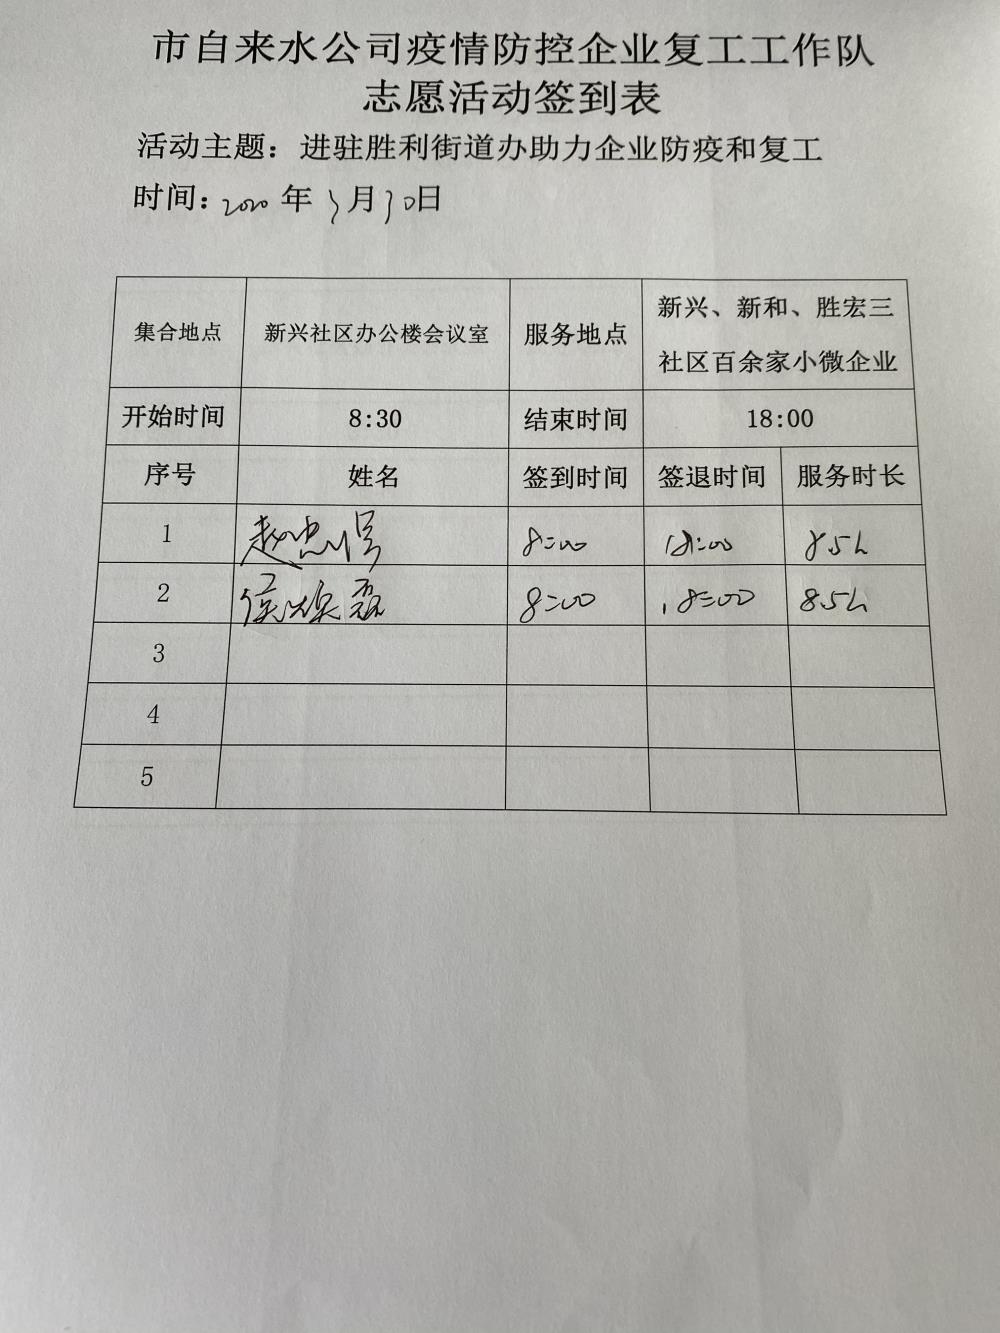 市自来水公司疫情防控企业复工工作队
志愿活动签到表
活动主题：进驻胜利街道办助力企业防疫和复工
时间：2020年3月30日
集合地点 新兴社区办公楼会议室 服务地点 新兴、新和、胜宏三
社区百余家小微企业
开始时间 8:30 结束时间 18:00
序号 姓名 签到时间 签退时间 服务时长
1 赵忠 8:00 18:00 8.5h
2 侯 磊 8:00 18:00 8.5h
3
4
5